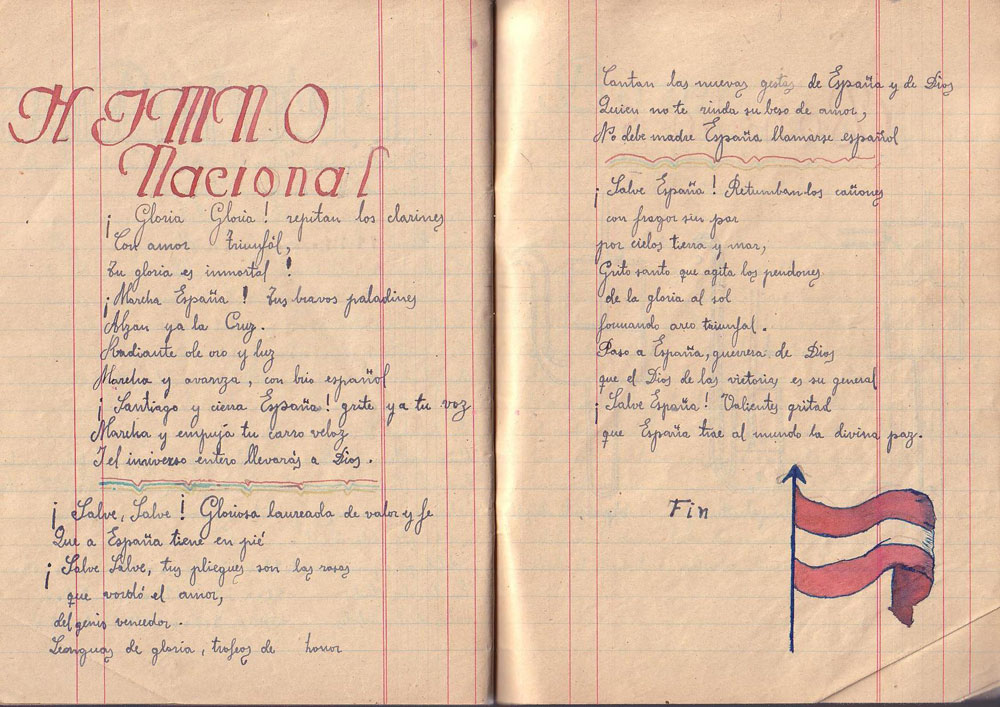 HIMNO
Nacional
¡ Gloria Gloria ! repitan los clarines
Con amor triunfál,
Tu gloria es inmortal !
¡Marcha España ! Tus bravos paladines
Alzan ya la Cruz.
Radiante ole oro y luz
Marcha y avanza, con brio español
¡ Santiago y cierra España! grite ya tu voz
Marcha y empuja tu carro veloz
Iel universo entero llevarás a Dios.
¡ Salve, Salve ! Gloriosa laureada de valor y fe
Que a España tiene en pié
¡ Salve Salve, tus pliegues son las rosas
que vordó el amor,
del genio vencedor.
Lenguas de gloria, trofeos de honor
Cantan las nuevas gestas de España y de Dios
Quien no te rinda su beso de amor,
No debe madre España llamarse español
¡ Salve España ! Retumban los cañones
con fragor sin par
por cielos tierra y mar,
Grito santo que agita los pendones
de la gloria al sol
formando arco triunfal.
Paso a España, guerrera de Dios
que el Dios de las victorias es su general
¡ Salve España ! Valientes gritad
que España trae al mundo la divina paz.
Fin